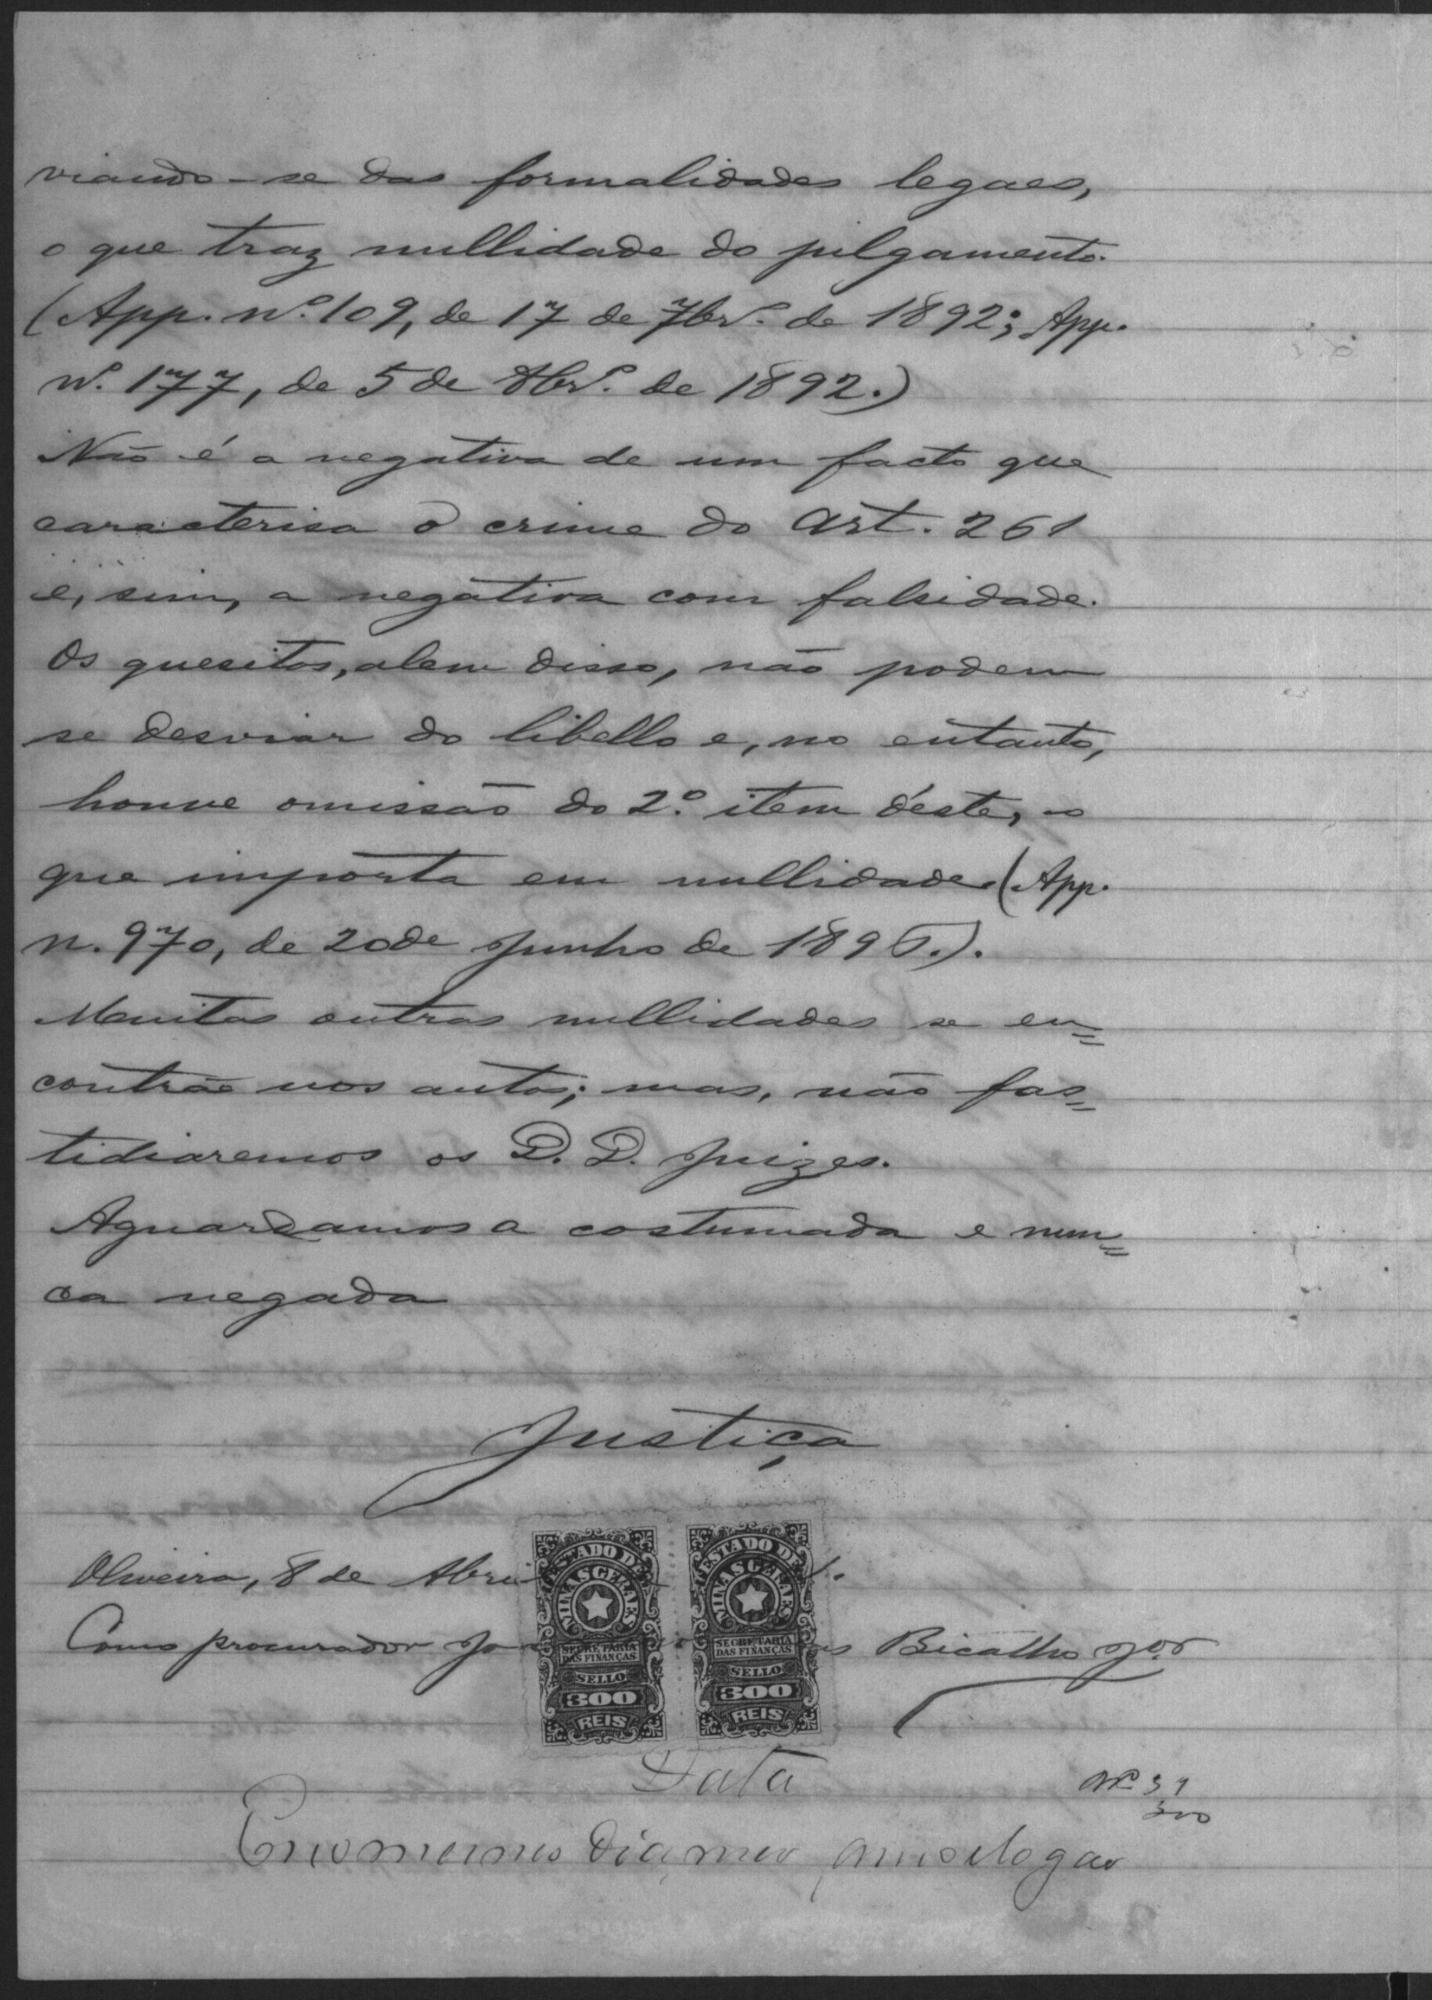 viando-se das formalidades legaes,
o que traz nullidade do julgamento.
(App. nº. 109, de 17 de 7brº. de 1892; App.
nº. 177, de 5 de 8brº. de 1892.)
Não é a negativa de um facto que
caracterisa o crime do Art. 261
e, sim, a negativa com falsidade.
Os quesitos, alem disso, não podem
se desviar do libello e, no entanto,
houve omissão do 2º. item déste, o
que importa em nullidade (App.
n. 970, de 20 de Junho de 1895.).
Muitas outras nullidades se en=
contrão nos autos; mas, não fas=
tidiaremos os D. D. Juizes.
Aguardamos a costumada e nun=
ca negada
Justiça
Oliveira, 8 de
Como procurador Bicalho Jor
ESTADO DE MINAS GERAES
SECRETARIA DAS FINANÇAS
SELLO
300
REIS
ESTADO DE MINAS GERAES
SECRETARIA DAS FINANÇAS
SELLO
300
REIS
Data
300